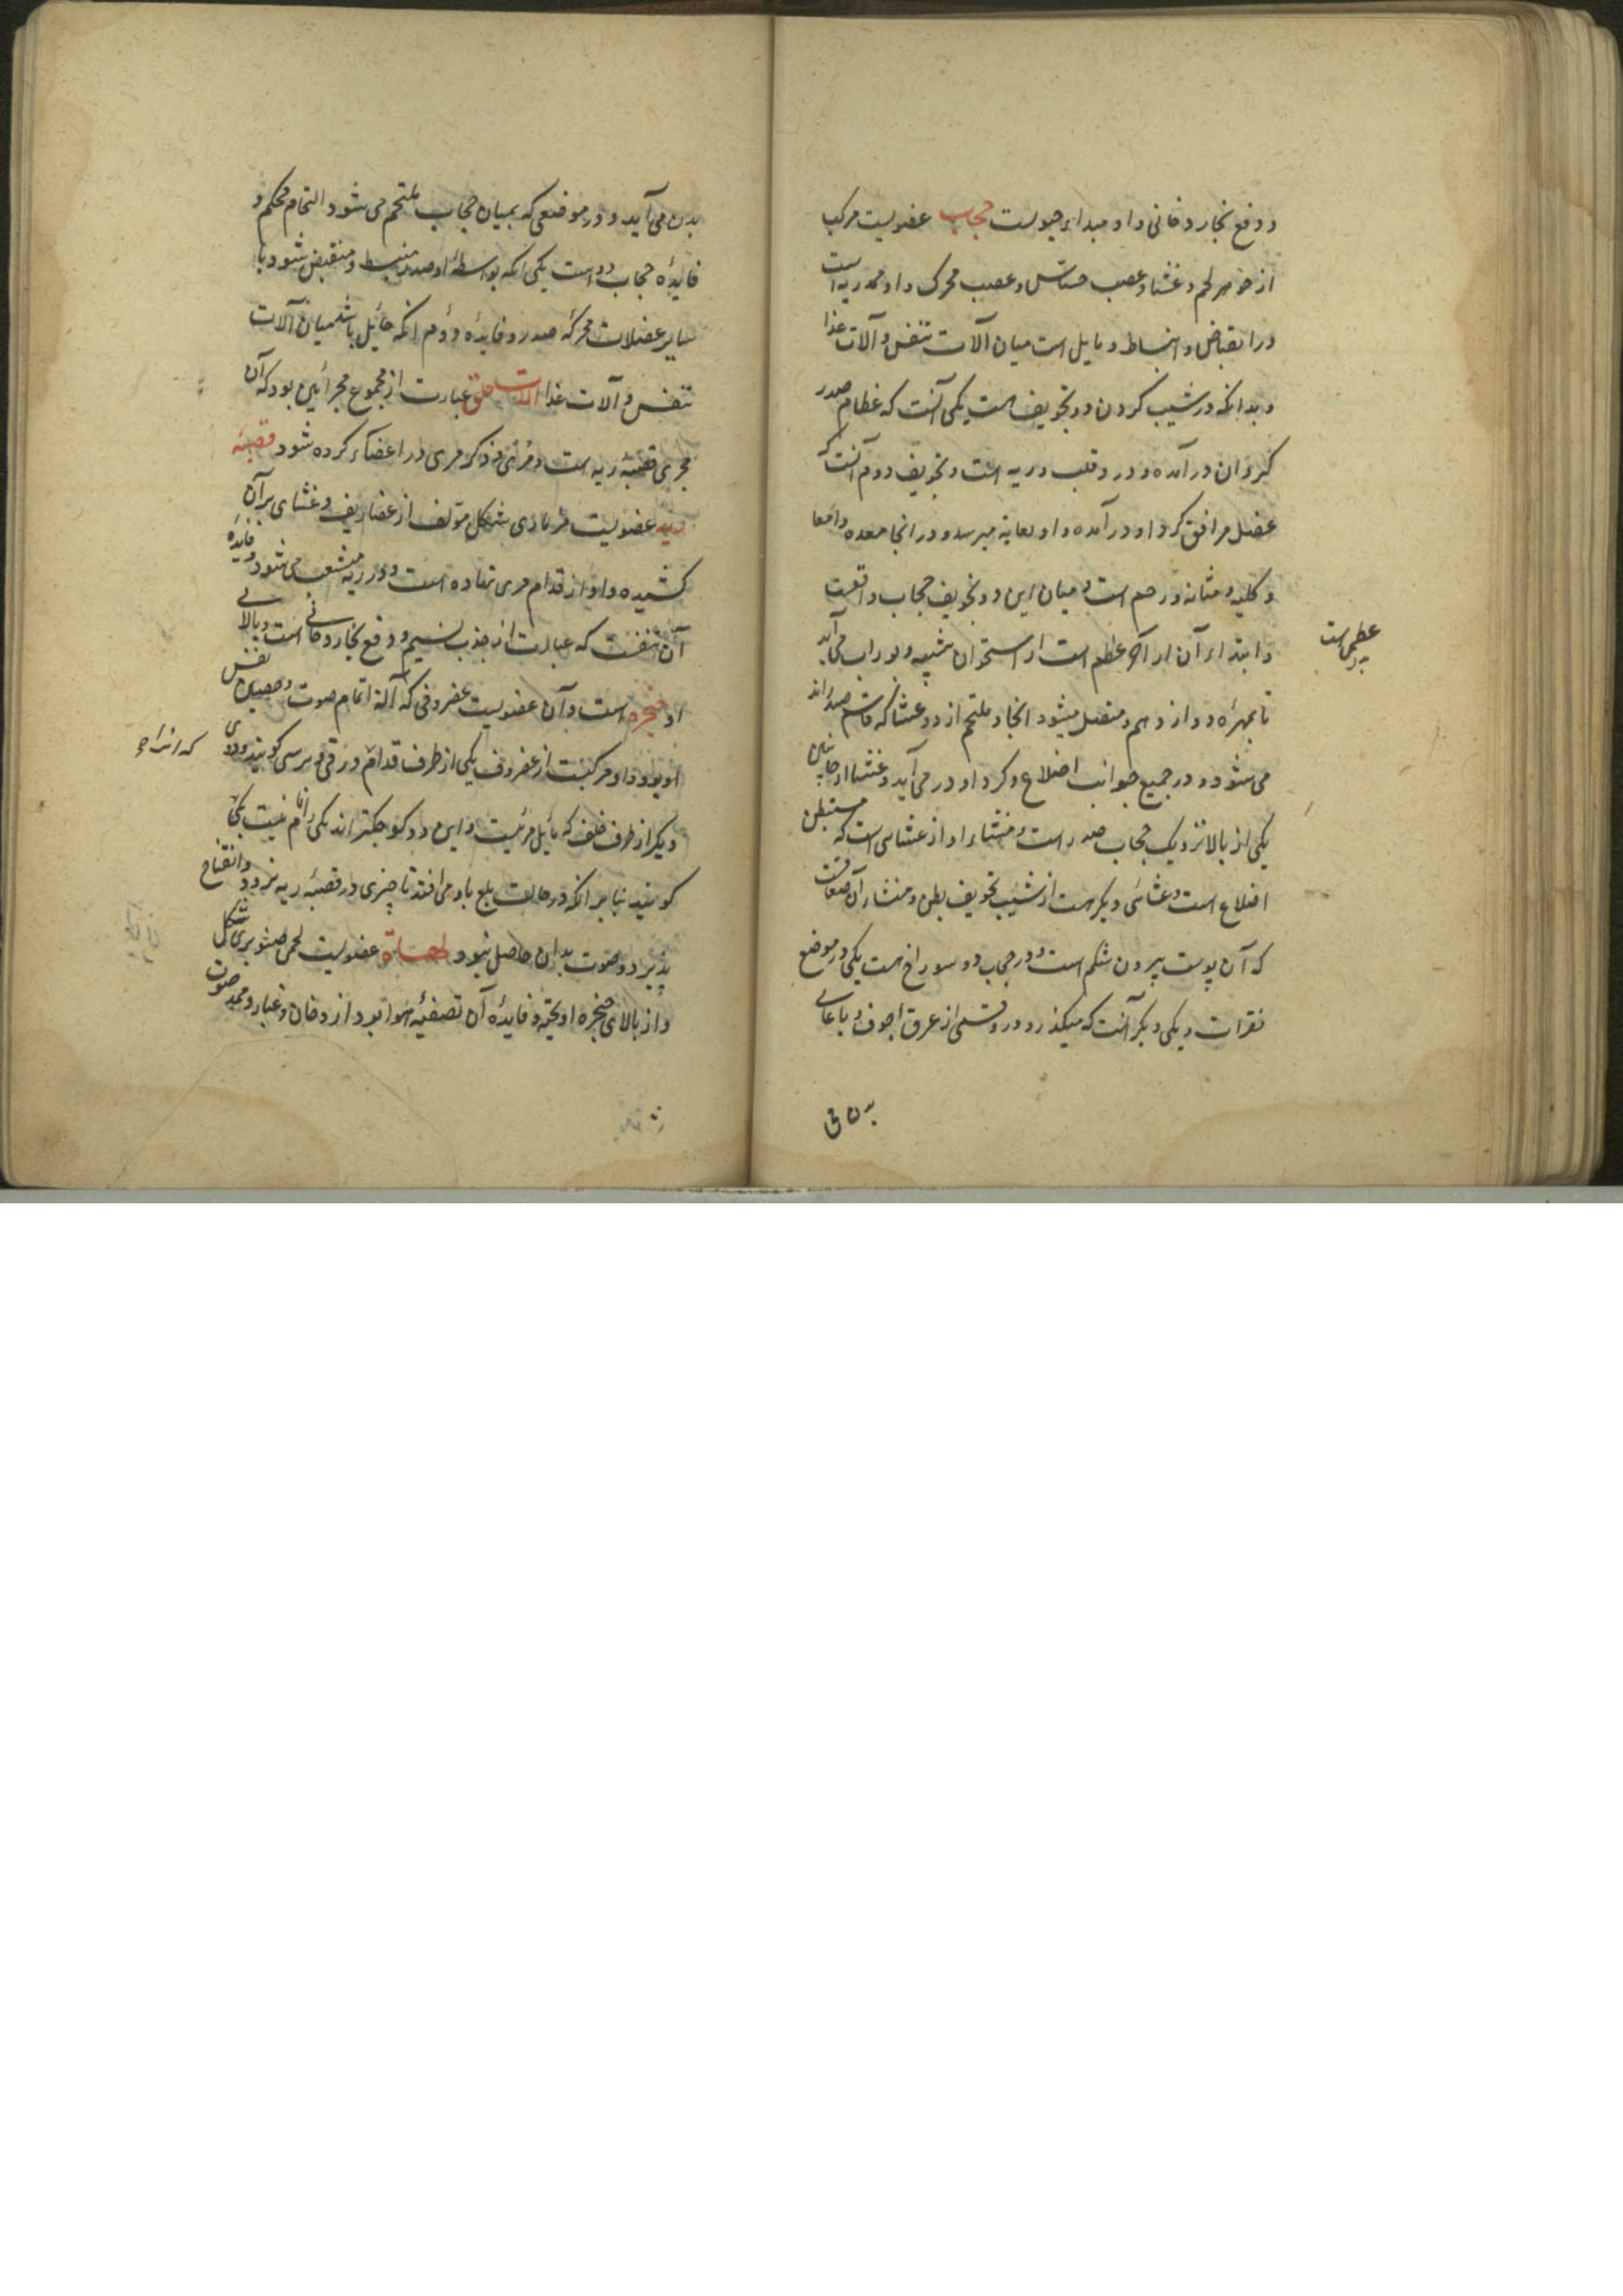 و دفع بخار دخانی و او مبداء حیوست حجاب عضویست مرکب
از جوهر لحم و غشا و عصب حساس و عصب محرک و او ممد ریه است
در انقباض و انبساط و حایل است میان آلات تنفس و آلات غذا
و بدانکه در شیب گردن دو تجویف است یکی آنست که عظام صدر
گرد آن درآمده و در و قلب و ریه است و تجویف دوم آنست که
عضل مراق گرد او درآمده و او بعانه میرسد و در انجا معده و امعا
و کلیه و مثانه و رحم است و میان این دو تجویف حجاب واقعست
و ابتداء آن از آخر عظم است از استخوان سینه و بوراب می آید
عظمی است
تا بمهره دوازدهم و متصل میشود انجا و ملتحم از دو غشا که قاسم صدراند
می شود و در جمیع جوانب اضلاع و گرد او در می آید و غشا از جانبین
یکی از بالا نزدیک حجاب صدر است و منشاء او از غشای است که مستبطن
اضلاع است و غشائی دیگر است از شیب تجویف بطن و منشاء آن صفاقست
که آن پوست بیرون شکم است و در حجاب دو سوراخ است یکی در موضع
فقرات و یکی دیگر آنست که میگذرد در و قسمی از عرق اجوف و باعالی
بدن می
بدن می آید و در موضعی که بمیان حجاب ملتحم می شود التحام محکم و
فایدهٔ حجاب دو است یکی انکه بواسطهٔ او صدر منبسط و منقبض شود با
سایر عضلات محرکهٔ صدر و فایدهٔ دوم انکه حائیل باشد میان آلات
تنفس و آلات غذا آلات حلق عبارت از مجموع مجرائین بود که آن
مجری قصبهٔ ریه است و مری و ذکر مری در اعضاء کرده شود قصبهٔ
ریه عضویست مزماری شکل مؤلف از غضاریف و غشای بر آن
کشیده و او از قدام مری نهاده است و در ریه منشعب می شود و فایدهٔ
آن تنفست که عبارت از جذب نسیم و دفع بخار دخانی است و بالای
او حنجره است و آن عضویست غضروفی که آلة اتمام صوت و حبس نفس
او بود و او مرکبست از غضروف یکی از طرف قدام و درقی و ترسی گویند و دوی
که انرا
دیگر از طرف خلف که مایل مریست و این دو کوچکتراند یکی را نام نیست یکی
گویند بنابر انکه در حالت بلع باو می افتد تا چیزی در قصبهٔ ریه نرود و انفتاح
پذیرد و صوت بدان حاصل شود لهاة عضویست لحمی صنوبری شکل
و از بالای حنجره اویخته و فایدهٔ آن تصفیهٔ هوا بود از دخان و غبار و ممد صوت